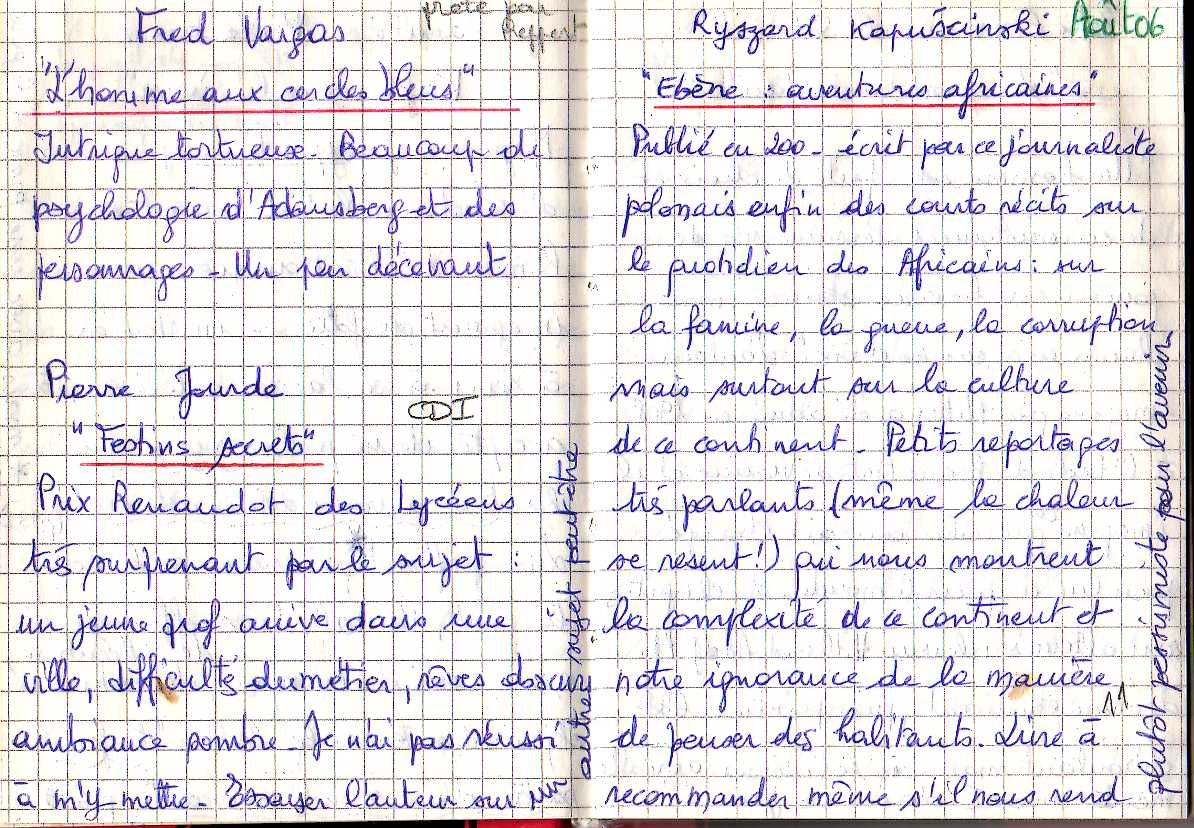 Fred Vargas
prêté par
Reffert
"L'homme aux cercles bleus"
Intrigue tortueuse - Beaucoup de
psychologie d'Adamsberg et des
personnages - Un peu décevant
Pierre Jourde
CDI
"Festins secrets"
Prix Renaudot des Lycéens
très surprenant par le sujet :
un jeune prof arrive dans une
ville, difficultés du métier, rêves obscurs
ambiance sombre - Je n'ai pas réussi
à m'y mettre - Essayer l'auteur sur un
autre sujet peut-être
Ryszard Kapuścinski Août 06
"Ebène : aventures africaines"
Publié en 200 - écrit par ce journaliste
polonais enfin des courts récits sur
le quotidien des Africains : sur
la famine, la guerre, la corruption,
mais surtout sur la culture
de ce continent - Petits reportages
très parlants (même la chaleur
se resent !) qui nous montrent
la complexité de ce continent et
notre ignorance de la manière
de penser des habitants. Livre à
11
recommander même s'il nous rend
plutôt pessimiste pour l'avenir